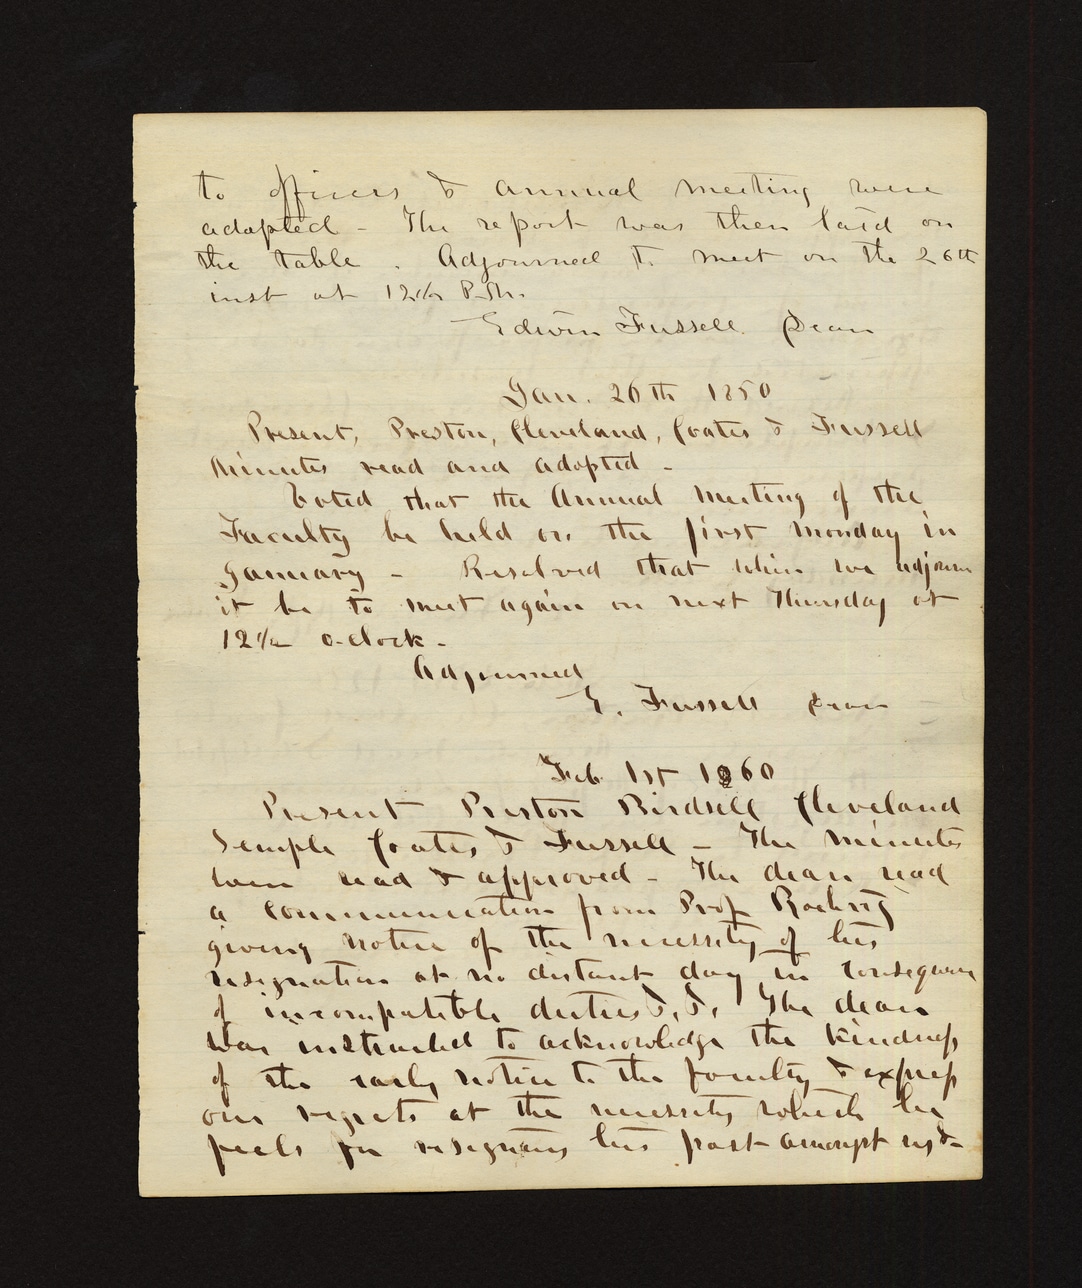 to officers & annual meeting were
adopted - The report was then laid on
the table . Adjourned to meet on the 26th
inst at 12½ P.M.
Edwin Fussell Dean
Jan. 26th 1850
Present, Preston, Cleveland, Coates & Fussell
Minutes read and adopted -
Voted that the Annual Meeting of the
Faculty be held on the first Monday in
January - Resolved that when we adjourn
it be to meet again on next Thursday at
12½ o-clock -
Adjourned
E. Fussell Dean
Feb 1st 1860
Present Preston Birdsell Cleveland
Semple Coates & Fussell - The minutes
were read & approved - The dean read
a communication from Prof Roehrig
giving notice of the necessity of his
resignation at no distant day in consequence
of incompatible duties &. &. The dean
was instructed to acknowledge the kindness
of the early notice to the faculty & express
our regrets at the necessity which he
feels for resigning his post amongst us &